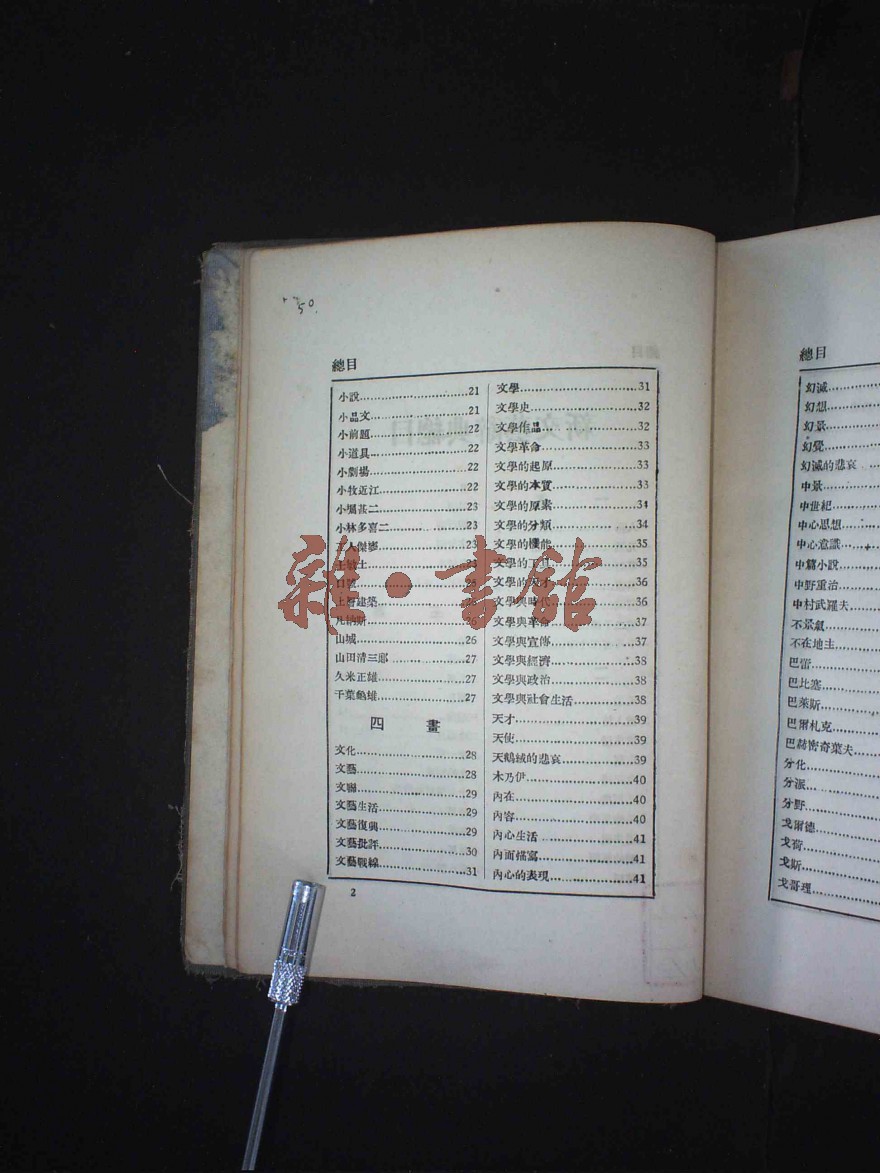 50.
總目
小說 21
小品文 21
小前題 22
小道具 22
小劇場 22
小牧近江 22
小堀甚二 23
小林多喜二 23
23
士
口
上層建築
凡
山城 26
山田清三郎 27
久米正雄 27
千葉龜雄 27
四畫
文化 28
文藝 28
文聯 29
文藝生活 29
文藝復興 29
文藝批評 30
文藝戰線 31
文學 31
文學史 32
文學作品 32
文學革命 33
文學的起原 33
文學的本質 33
文學的原素 34
文學的分類 34
文學的機能 35
文學的工具 35
文學的天才 36
文學與時代 36
文學與革命 37
文學與宣傳 37
文學與經濟 38
文學與政治 38
文學與社會生活 38
天才 39
天使 39
天鵝絨的悲哀 39
木乃伊 40
內在 40
內容 40
內心生活 41
內面描寫 41
內心的表現 41
2
雜·書館
總目
幻滅
幻想
幻景
幻覺
幻滅的悲哀
中景
中世紀
中心思想
中心意識
中篇小說
中野重治
中村武羅夫
不景氣
不在地主
巴雷
巴比塞
巴萊斯
巴爾札克
巴赫密奇葉夫
分化
分派
分野
戈爾德
戈
戈斯
戈哥理